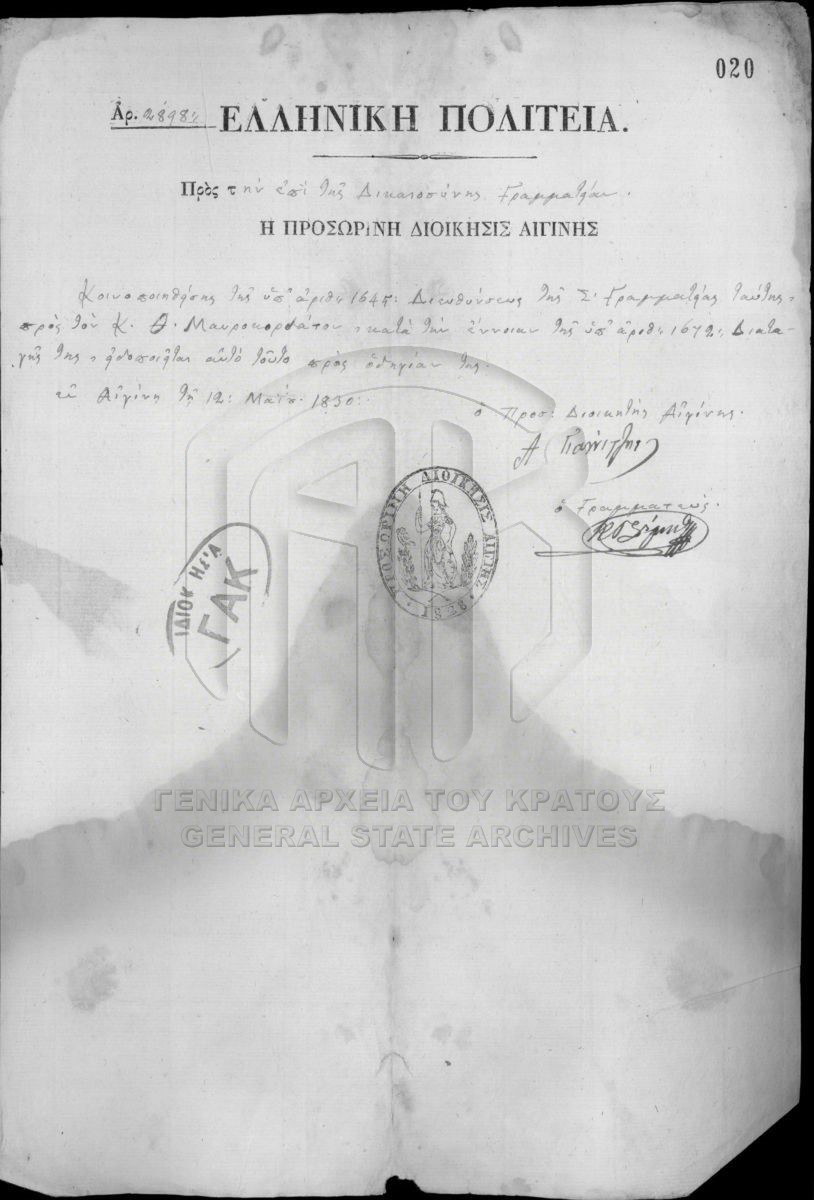 020
Ἀρ. 2898: ΕΛΛΗΝΙΚΗ ΠΟΛΙΤΕΙΑ.
Πρὸς την ἐπὶ τῆς Δικαιοσύνης Γραμματείαν.
Η ΠΡΟΣΩΡΙΝΗ ΔΙΟΙΚΗΣΙΣ ΑΙΓΙΝΗΣ
Κοινοποιηθείσης τῆς ὑπ' ἀριθ: 1645: Διευθύνσεως τῆς Σ. Γραμματείας ταύτης,
πρὸς τὸν Κ. Θ. Μαυροκορδάτον, κατὰ τὴν ἔννοιαν τῆς ὑπ' ἀριθ: 1672: Διατα-
γῆς της, εἰδοποιεῖται αὐτὸ τοῦτο πρὸς ὁδηγίαν της.
ἐν Αἰγίνῃ τῇ 12: Μαΐου 1830:
ὁ Προσ: Διοικητὴς Αἰγίνης.
Α
ὁ Γραμματεύς.
ΠΡΟΣΩΡΙΝΗ ΔΙΟΙΚΗΣΙΣ ΑΙΓΙΝΗΣ
1828
ΙΔΙΟΚΤΗΣΙΑ
ΓΑΚ
ΓΕΝΙΚΑ ΑΡΧΕΙΑ ΤΟΥ ΚΡΑΤΟΥΣ
GENERAL STATE ARCHIVES